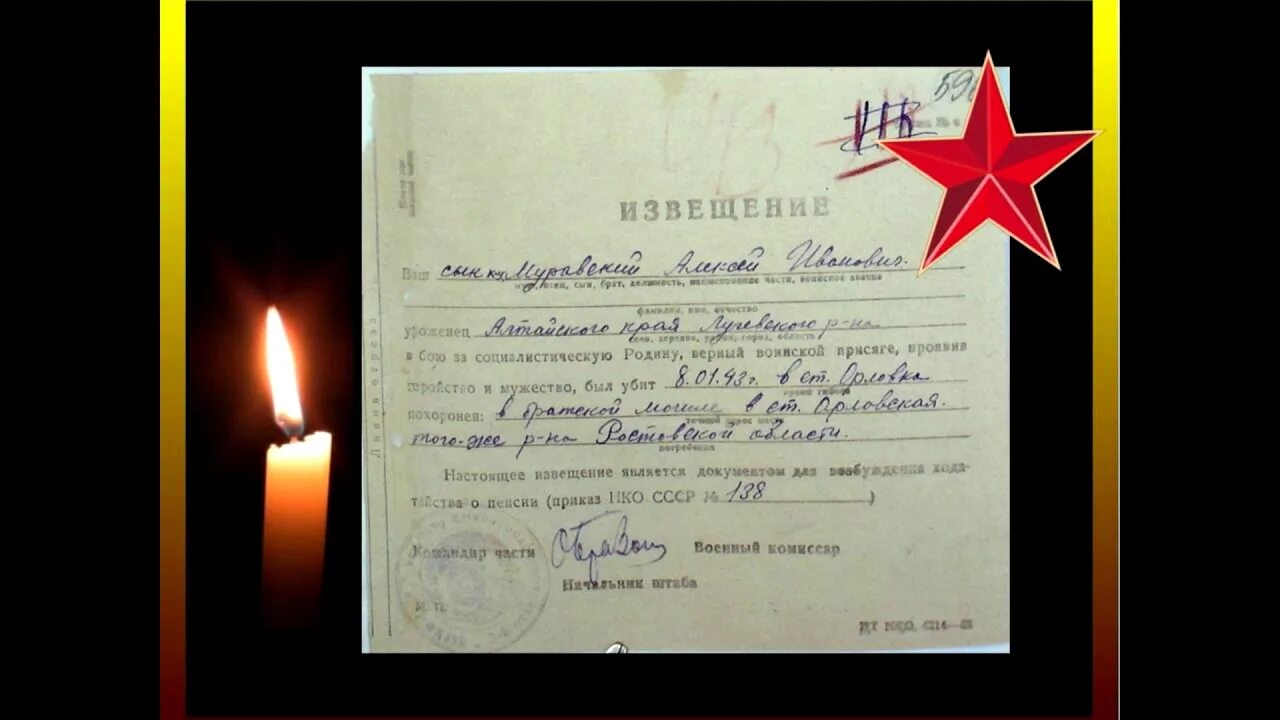 596
ИЗВЕЩЕНИЕ
Ваш сын кц Муравский Алексей Иванович.
муж, отец, сын, брат, должность, наименование части, воинское звание
фамилия, имя, отчество
уроженец Алтайского края Лугевского р-на
село, деревня, район, город, область
в бою за социалистическую Родину, верный воинской присяге, проявив
геройство и мужество, был убит 8.01.43г. в ст. Орловка
время гибели
похоронен: в братской могиле в ст. Орловская.
того-же р-на Ростовской области.
погребения
Настоящее извещение является документом для возбуждения хода-
тайства о пенсии (приказ НКО СССР № 138 )
Командир части Военный комиссар
Начальник штаба
М. П.
Линия отреза